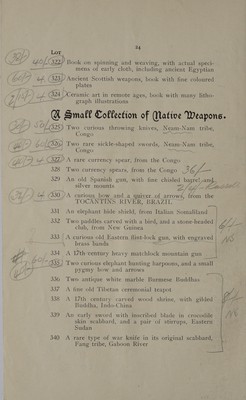 24
Lot
322 Book on spinning and weaving, with actual speci-
mens of early cloth, including ancient Egyptian
323 Ancient Scottish weapons, book with fine coloured
plates
324 Ceramic art in remote ages, book with many litho-
graph illustrations
A Small Collection of Native Weapons.
325 Two curious throwing knives, Neam-Nam tribe,
Congo
326 Two rare sickle-shaped swords, Neam-Nam tribe,
Congo
327 A rare currency spear, from the Congo
328 Two currency spears, from the Congo 36/-
329 An old Spanish gun, with fine chisled barrel and
silver mounts
330 A curious bow and a quiver of arrows, from the
TOCANTINS RIVER, BRAZIL
331 An elephant hide shield, from Italian Somaliland
332 Two paddles carved with a bird, and a stone-headed
club, from New Guinea
333 A curious old Eastern flint-lock gun, with engraved
brass bands
334 A 17th century heavy matchlock mountain gun
335 Two curious elephant hunting harpoons, and a small
pygmy bow and arrows
336 Two antique white marble Burmese Buddhas
337 A fine old Tibetan ceremonial teapot
338 A 17th century carved wood shrine, with gilded
Buddha, Indo-China
339 An early sword with inscribed blade in crocodile
skin scabbard, and a pair of stirrups, Eastern
Sudan
340 A rare type of war knife in its original scabbard,
Fang tribe, Gaboon River